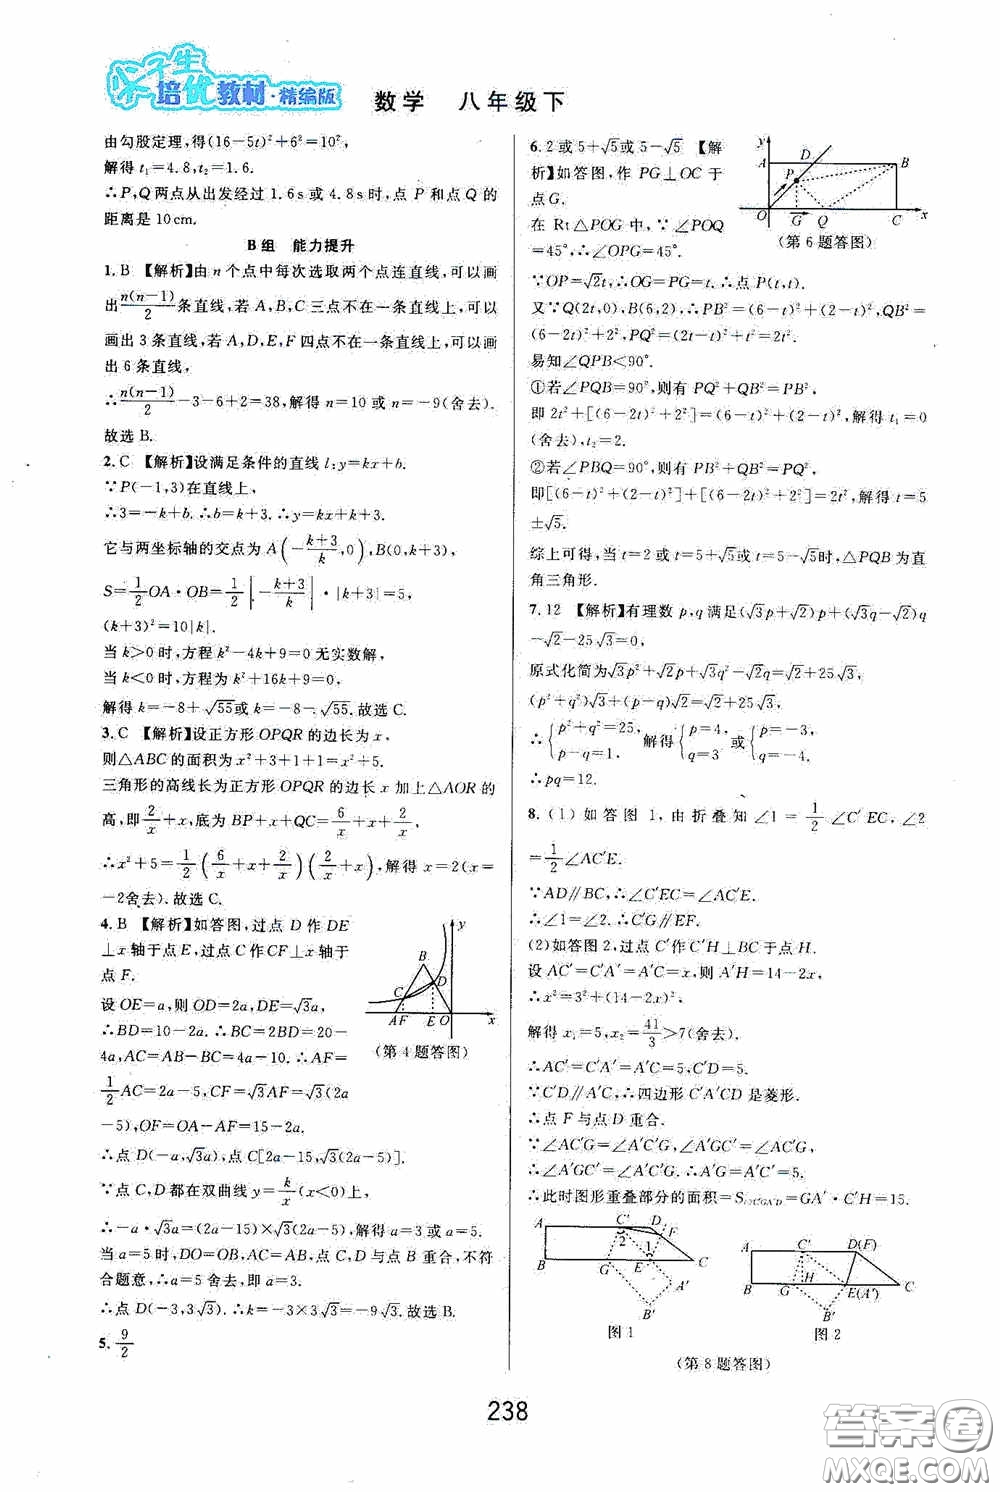 尖子生
培优教材·精编版
数学 八年级下
由勾股定理,得(16-5t)²+6²=10²,
解得 t₁=4.8,t₂=1.6.
∴P,Q 两点从出发经过 1.6s 或 4.8s 时,点 P 和点 Q 的
距离是 10cm.
B 组 能力提升
1. B 【解析】由 n 个点中每次选取两个点连直线,可以画
出 n(n-1)/2 条直线,若 A,B,C 三点不在一条直线上,可以
画出 3 条直线,若 A,D,E,F 四点不在一条直线上,可以画
出 6 条直线,
∴n(n-1)/2-3-6+2=38,解得 n=10 或 n=-9(舍去).
故选 B.
2. C 【解析】设满足条件的直线 l:y=kx+b.
∵P(-1,3)在直线上,
∴3=-k+b.∴b=k+3.∴y=kx+k+3.
它与两坐标轴的交点为 A(-(k+3)/k,0),B(0,k+3),
S=1/2 OA·OB=1/2|-(k+3)/k|·|k+3|=5,
(k+3)²=10|k|.
当 k>0 时,方程 k²-4k+9=0 无实数解,
当 k<0 时,方程 k²+16k+9=0,
解得 k=-8+√55或 k=-8-√55.故选 C.
3. C 【解析】设正方形 OPQR 的边长为 x,
则△ABC 的面积为 x²+3+1+1=x²+5,
三角形的高线长为正方形 OPQR 的边长 x 加上△AOR 的
高,即 2/x+x,底为 BP+x+QC=6/x+x+2/x,
∴x²+5=1/2(6/x+x+2/x)(2/x+x),解得 x=2(x=
-2舍去).故选 C.
4. B 【解析】如答图,过点 D 作 DE
⊥x 轴于点 E,过点 C 作 CF⊥x 轴于
点 F.
设 OE=a,则 OD=2a,DE=√3a,
∴BD=10-2a,∴BC=2BD=20-
4a,AC=AB-BC=4a-10.∴AF=
1/2AC=2a-5,CF=√3AF=√3(2a
-5),OF=OA-AF=15-2a.
∴点 D(-a,√3a),点 C[2a-15,√3(2a-5)].
∵点 C,D 都在双曲线 y=k/x(x<0)上,
∴-a·√3a=(2a-15)×√3(2a-5),解得 a=3 或 a=5.
当 a=5 时,DO=OB,AC=AB,点 C,D 与点 B 重合,不符
合题意,∴a=5 舍去,即 a=3.
∴点 D(-3,3√3).∴k=-3×3√3=-9√3.故选 B.
5. 9/2
y
B
C
D
A F E O x
(第 4 题答图)
6. 2 或 5+√5或 5-√5 【解
析】如答图,作 PG⊥OC 于
点 G.
在 Rt△POG 中,∵∠POQ
=45°,∴∠OPG=45°.
∵OP=√2t,∴OG=PG=t.∴点 P(t,t).
又∵Q(2t,0),B(6,2),∴PB²=(6-t)²+(2-t)²,QB²=
(6-2t)²+2²,PQ²=(2t-t)²+t²=2t².
易知∠QPB<90°.
①若∠PQB=90°,则有 PQ²+QB²=PB²,
即 2t²+[(6-2t)²+2²]=(6-t)²+(2-t)²,解得 t₁=0
(舍去),t₂=2.
②若∠PBQ=90°,则有 PB²+QB²=PQ²,
即[(6-t)²+(2-t)²]+[(6-2t)²+2²]=2t²,解得 t=5
±√5.
综上可得,当 t=2 或 t=5+√5或 t=5-√5时,△PQB 为直
角三角形.
y
A D B
P
O G Q C x
(第 6 题答图)
7. 12 【解析】有理数 p,q 满足(√3p+√2)p+(√3q-√2)q
-√2-25√3=0,
原式化简为√3p²+√2p+√3q²-√2q=√2+25√3,
(p²+q²)√3+(p-q)√2=√2+25√3,
∴{p²+q²=25, p-q=1. 解得{p=4, q=3 或{p=-3, q=-4.
∴pq=12.
8. (1)如答图 1,由折叠知∠1=1/2∠C′EC,∠2
=1/2∠AC′E.
∵AD∥BC,∴∠C′EC=∠AC′E.
∴∠1=∠2.∴C′G∥EF.
(2)如答图 2,过点 C′作 C′H⊥BC 于点 H.
设 AC′=A′C′=C′A′=x,则 A′H=14-2x,
∴x²=3²+(14-2x)²,
解得 x₁=5,x₂=41/3>7(舍去).
∴AC′=C′A′=A′C=5,C′D=5.
∵C′D∥A′C,∴四边形 C′A′CD 是菱形.
∴点 F 与点 D 重合.
∵∠AC′G=∠A′C′G,∠AC′G=∠A′GC′,
∴∠A′GC′=∠A′C′G,∴A′G=A′C′=5.
∴此时图形重叠部分的面积=S▱C′GA′D=GA′·C′H=15.
A C′ D
F
2
1
B G E C
A′
B′
图 1
A C′ D(F)
B G H E(A′) C
B′
图 2
(第 8 题答图)
238
答案圈
MXQE.COM